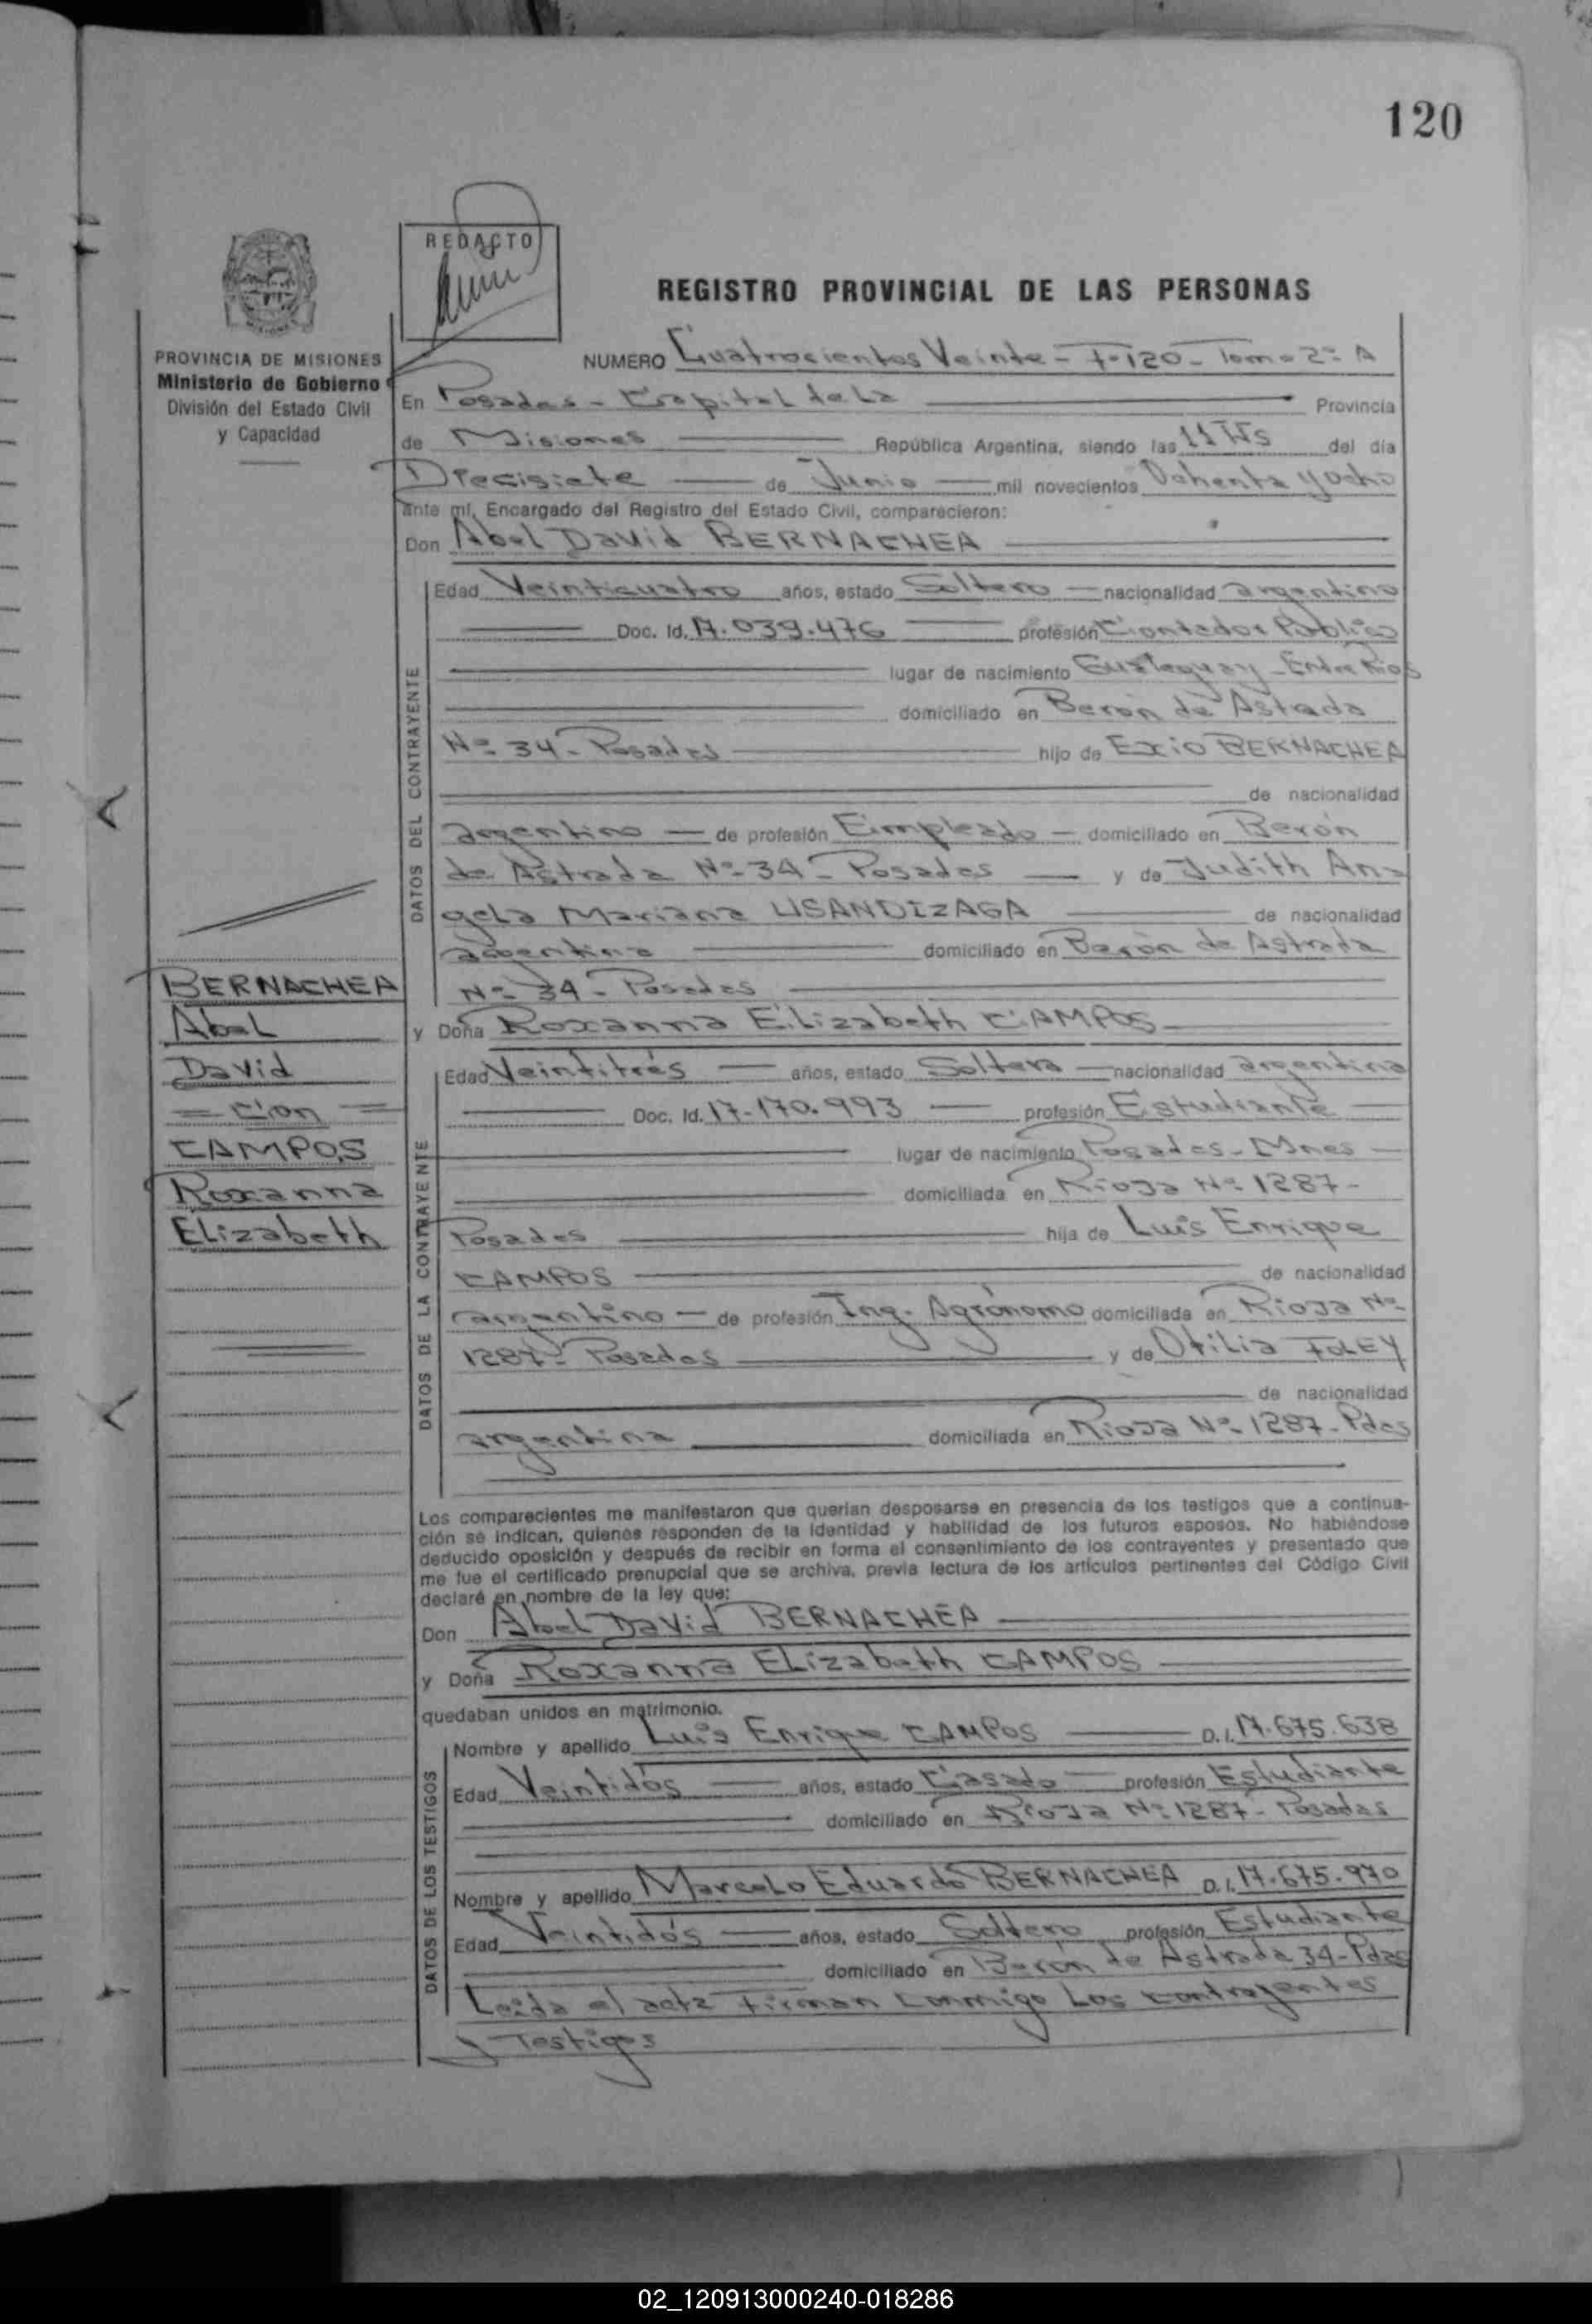 120
REDACTO
REGISTRO PROVINCIAL DE LAS PERSONAS
PROVINCIA DE MISIONES
Ministerio de Gobierno
División del Estado Civil
y Capacidad
NUMERO Cuatrocientos Veinte - F-120 - Tomo 2º A
En Posadas - Capital de La Provincia
de Misiones República Argentina, siendo las 11 Hs del día
Diecisiete de Junio mil novecientos Ochenta y ocho
ante mí, Encargado del Registro del Estado Civil, comparecieron:
Don Abel David BERNACHEA
DATOS DEL CONTRAYENTE
Edad Veinticuatro años, estado Soltero nacionalidad argentino
Doc. Id. 17.039.476 profesión Contador Público
lugar de nacimiento Gualeguay - Entre Rios
domiciliado en Berón de Astrada
Nº 34 - Posadas hijo de Exio BERNACHEA
de nacionalidad
argentino de profesión Empleado domiciliado en Berón
de Astrada Nº 34 - Posadas y de Judith An-
gela Mariana USANDIZAGA de nacionalidad
argentina domiciliado en Berón de Astrada
Nº 34 - Posadas
BERNACHEA
Abel
David
= Con =
CAMPOS
Roxanna
Elizabeth
y Doña Roxanna Elizabeth CAMPOS
DATOS DE LA CONTRAYENTE
Edad Veintitrés años, estado Soltera nacionalidad argentina
Doc. Id. 17.170.993 profesión Estudiante
lugar de nacimiento Posadas - Mnes
domiciliada en Rioja Nº 1287 -
Posadas hija de Luis Enrique
CAMPOS de nacionalidad
argentino de profesión Ing. Agrónomo domiciliada en Rioja Nº
1287 - Posadas y de Otilia FOLEY
de nacionalidad
argentina domiciliada en Rioja Nº 1287 - Pdas
Los comparecientes me manifestaron que querían desposarse en presencia de los testigos que a continua-
ción se indican, quienes responden de la identidad y habilidad de los futuros esposos. No habiéndose
deducido oposición y después de recibir en forma el consentimiento de los contrayentes y presentado que
me fue el certificado prenupcial que se archiva, previa lectura de los artículos pertinentes del Código Civil
declaré en nombre de la ley que:
Don Abel David BERNACHEA
y Doña Roxanna Elizabeth CAMPOS
quedaban unidos en matrimonio.
DATOS DE LOS TESTIGOS
Nombre y apellido Luis Enrique CAMPOS D.I. 17.675.638
Edad Veintidós años, estado Casado profesión Estudiante
domiciliado en Rioja Nº 1287 - Posadas
Nombre y apellido Marcelo Eduardo BERNACHEA D.I. 17.675.970
Edad Veintidós años, estado Soltero profesión Estudiante
domiciliado en Berón de Astrada 34 - Pdas
Leida el acta firman conmigo Los contrayentes
y Testigos
02_120913000240-018286